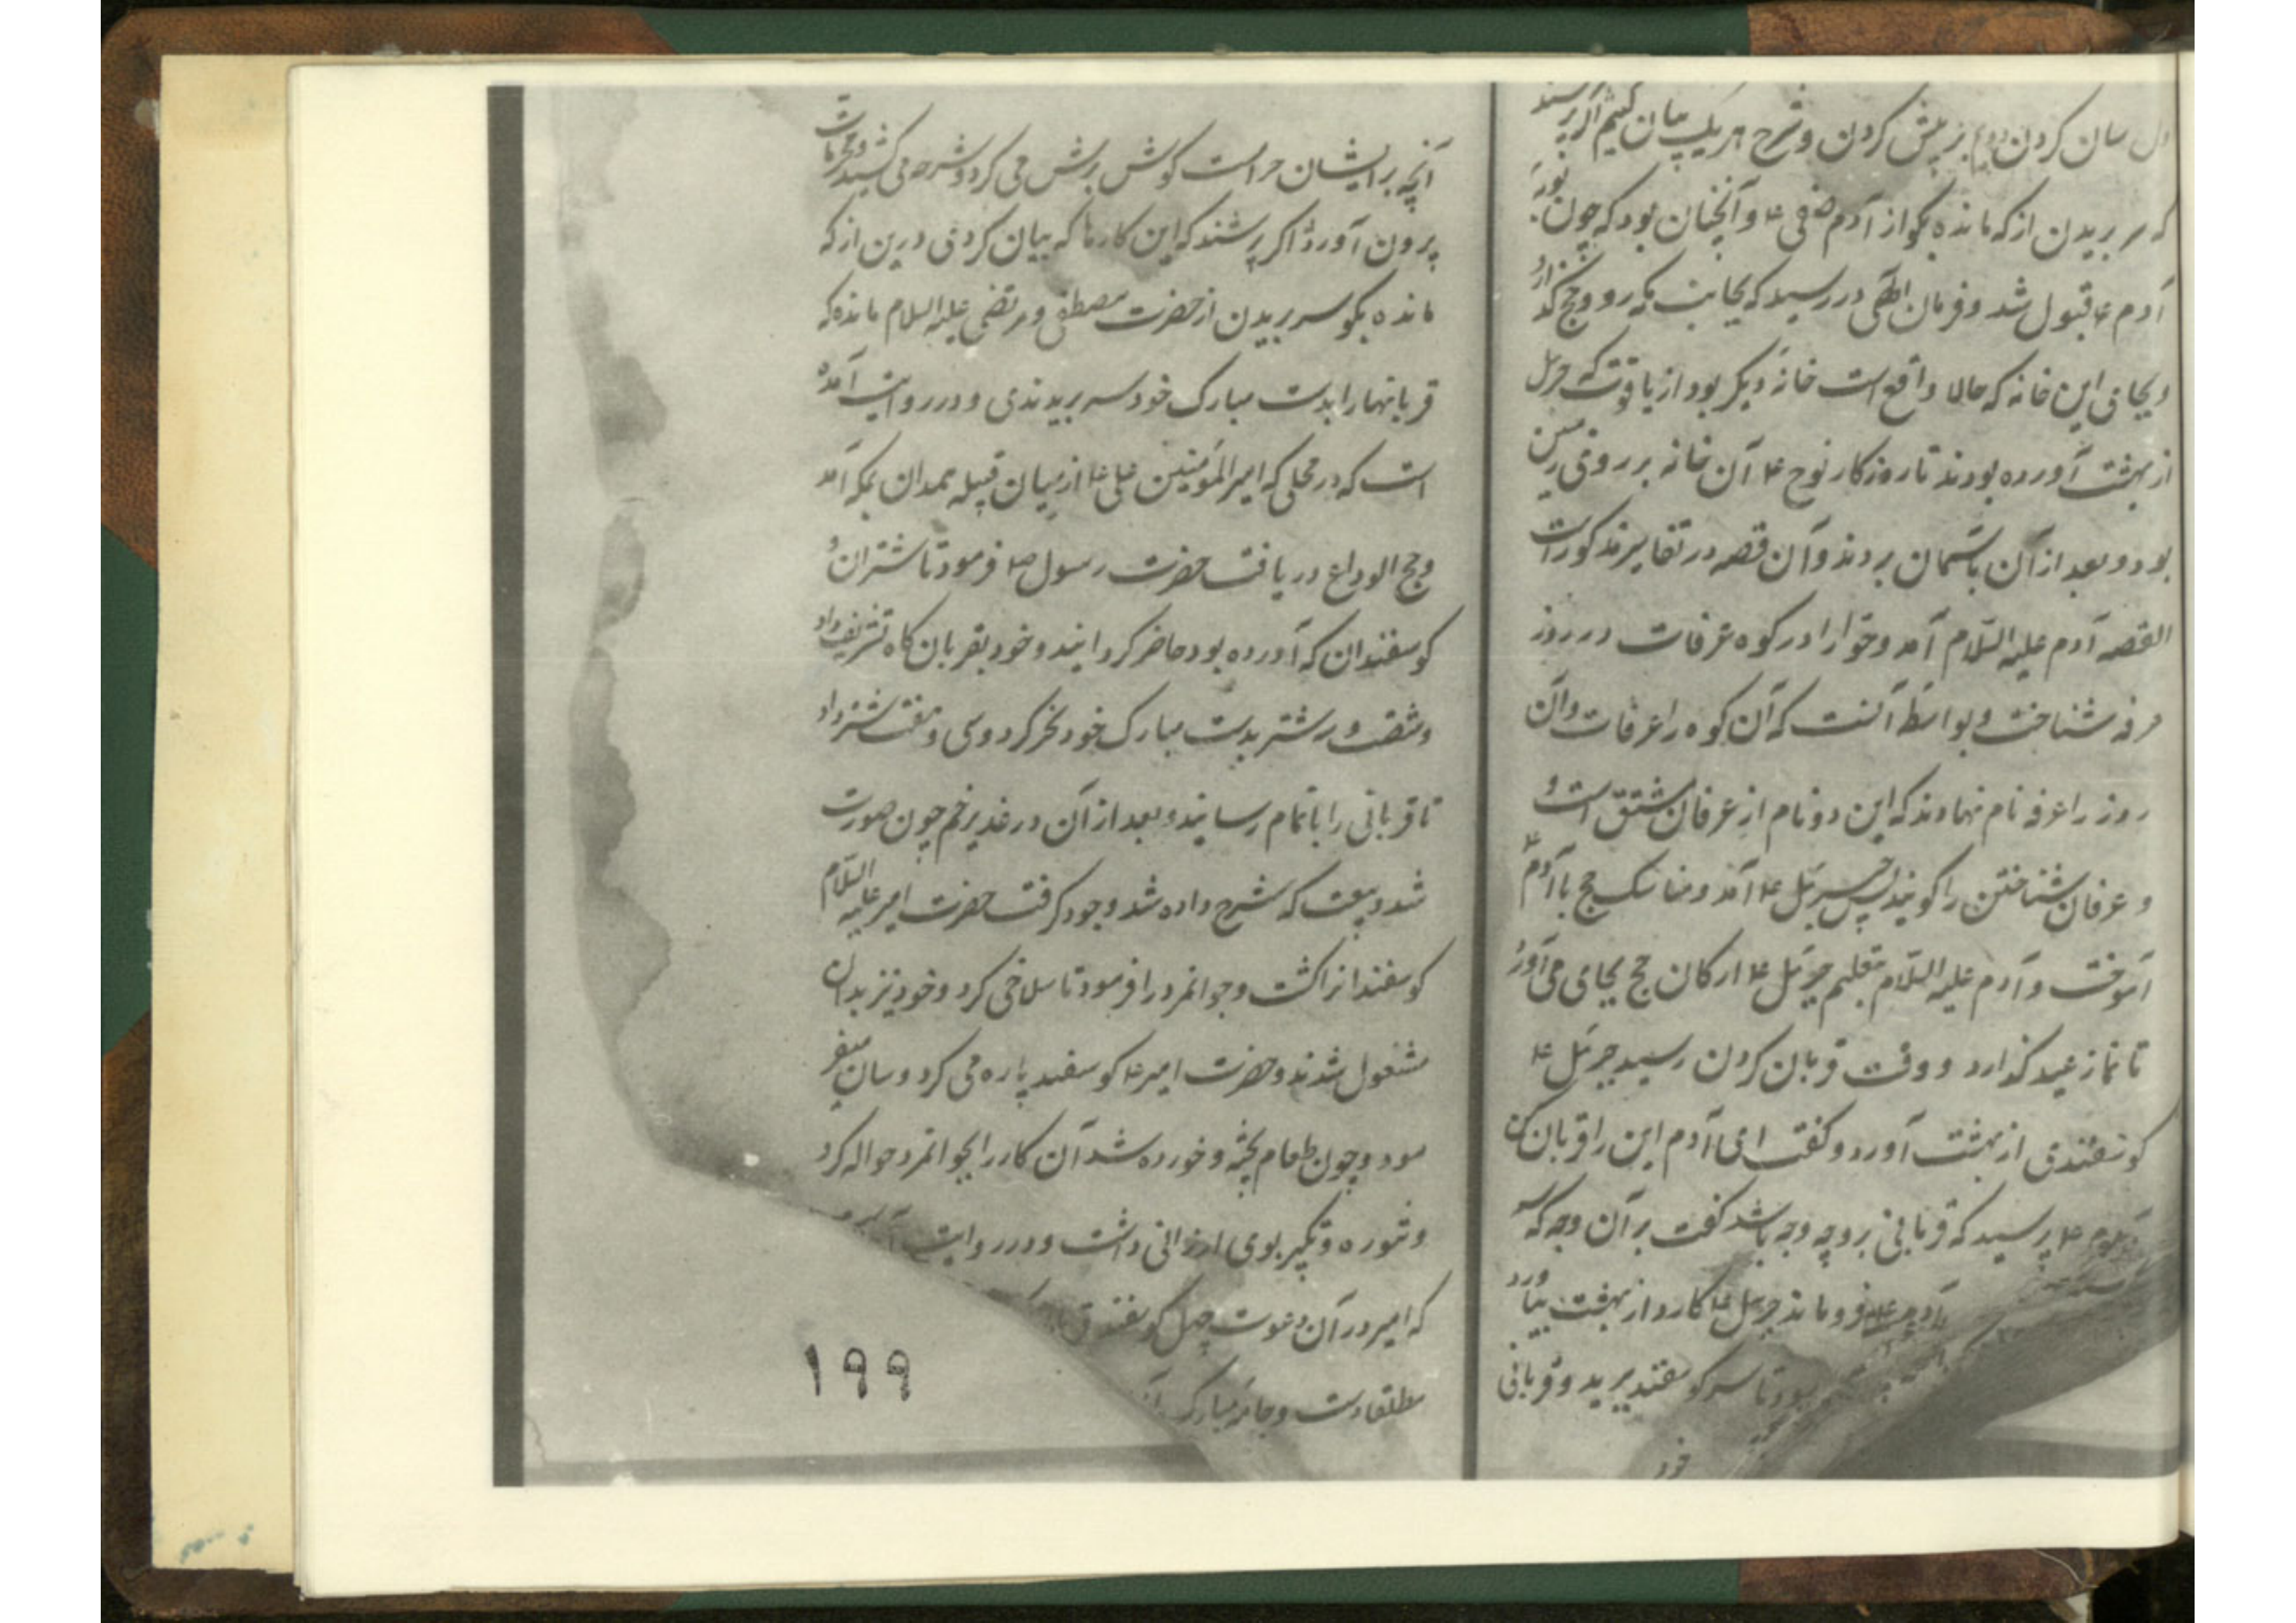 سان کردن دوم بزپش کردن و شرح هر یک بیان کنیم اگر پرسند
که سر بریدن از که مانده بگو از آدم صفی ع و آنچنان بود که چون توبۀ
آدم ع قبول شد و فرمان الهی در رسید که بجانب مکه رو و حج گذار
و بجای این خانه که حالا واقع است خانۀ دیگر بود از یاقوت که جبرئیل
از بهشت آورده بودند تا روزکار نوح ع آن خانه بر روی زمین
بود و بعد از آن بآسمان بردند و آن قصه در تفاسیر مذکور است
القصه آدم علیه السّلام آمد و حوّا را در کوه عرفات در روز
عرفه شناخت و بواسطۀ آنست که آن کوه را عرفات و آن
روز را عرفه نام نهادند که این دو نام از عرفان مشتق است و
و عرفان شناختن را گویند پس جبرئیل ع آمد و مناسک حج با آدم ع
آموخت و آدم علیه السّلام بتعلیم جبرئیل ع ارکان حج بجای می آورد
تا نماز عید گذارد و وقت قربان کردن رسید جبرئیل ع
گوسفندی از بهشت آورد و گفت ای آدم این را قربان کن
آدم ع پرسید که قربانی بر چه وجه باشد گفت بر آن وجه که
آدم ع فرو ماند جبرئیل ع کارد از بهشت بیاورد
بود تا سر گوسفند برید و قربانی
خود
آنچه بر ایشان حرامست گوش برش می کرد و شرحه می کشید و محرمات
برون آورد اگر پرسند که این کارها که بیان کردی درین از که
مانده بگو سر بریدن از حضرت مصطفی و مرتضی علیه السلام مانده که
قربانیها را بدست مبارک خود سر بریدندی و در روایت آمده
است که در محلی که امیر المؤمنین علی ع از میان قبیله همدان بمکه آمد
و حج الوداع دریافت حضرت رسول ص فرمود تا شتران و
گوسفندان که آورده بود حاضر گردانیدند و خود بقربان گاه تشریف داد
و شصت و سه شتر بدست مبارک خود نحر کرد و سی و هفت شتر داد
تا قربانی را باتمام رسانید و بعد از آن در غدیر خم چون صورت
شد و بیعت که شرح داده شد وجود گرفت حضرت امیر علیه السّلام
گوسفند از اکشت و جوانمرد را فرمود تا سلاخی کرد و خود نیز بدان
مشغول شدند و حضرت امیر ع گوسفند پاره می کرد و سان میفر
مود و چون طعام پخته و خورده شد آن کار را بجوانمرد حواله کرد
و تنوره و تکبیر بوی ارزانی داشت و در روایت
که امیر در آن دعوت چهل گوسفند
مطلقا دست و جامۀ مبارک
۱۹۹